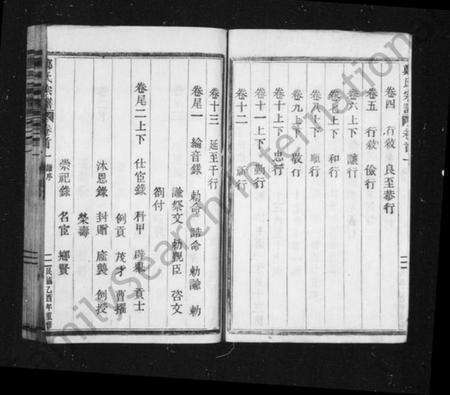 卷四 行敘 良至恭行
卷五 行敘 儉行
卷六上下 讓行
卷七上下 和行
卷八上下 順行
卷九上下 敬行
卷十上下 忠行
卷十一上下 勤行
卷十二
卷十三 延至于行
卷尾一 綸音錄 勅命 誥命 勅諭 勅
諭祭文 勅親臣 啓文
劄付
卷尾二上下 仕宦錄 科甲 薦舉 貢士
例貢 茂才 曹掾
沐恩錄 封贈 廕襲 例授
榮壽
崇祀錄 名宦 鄉賢
FamilySearch International